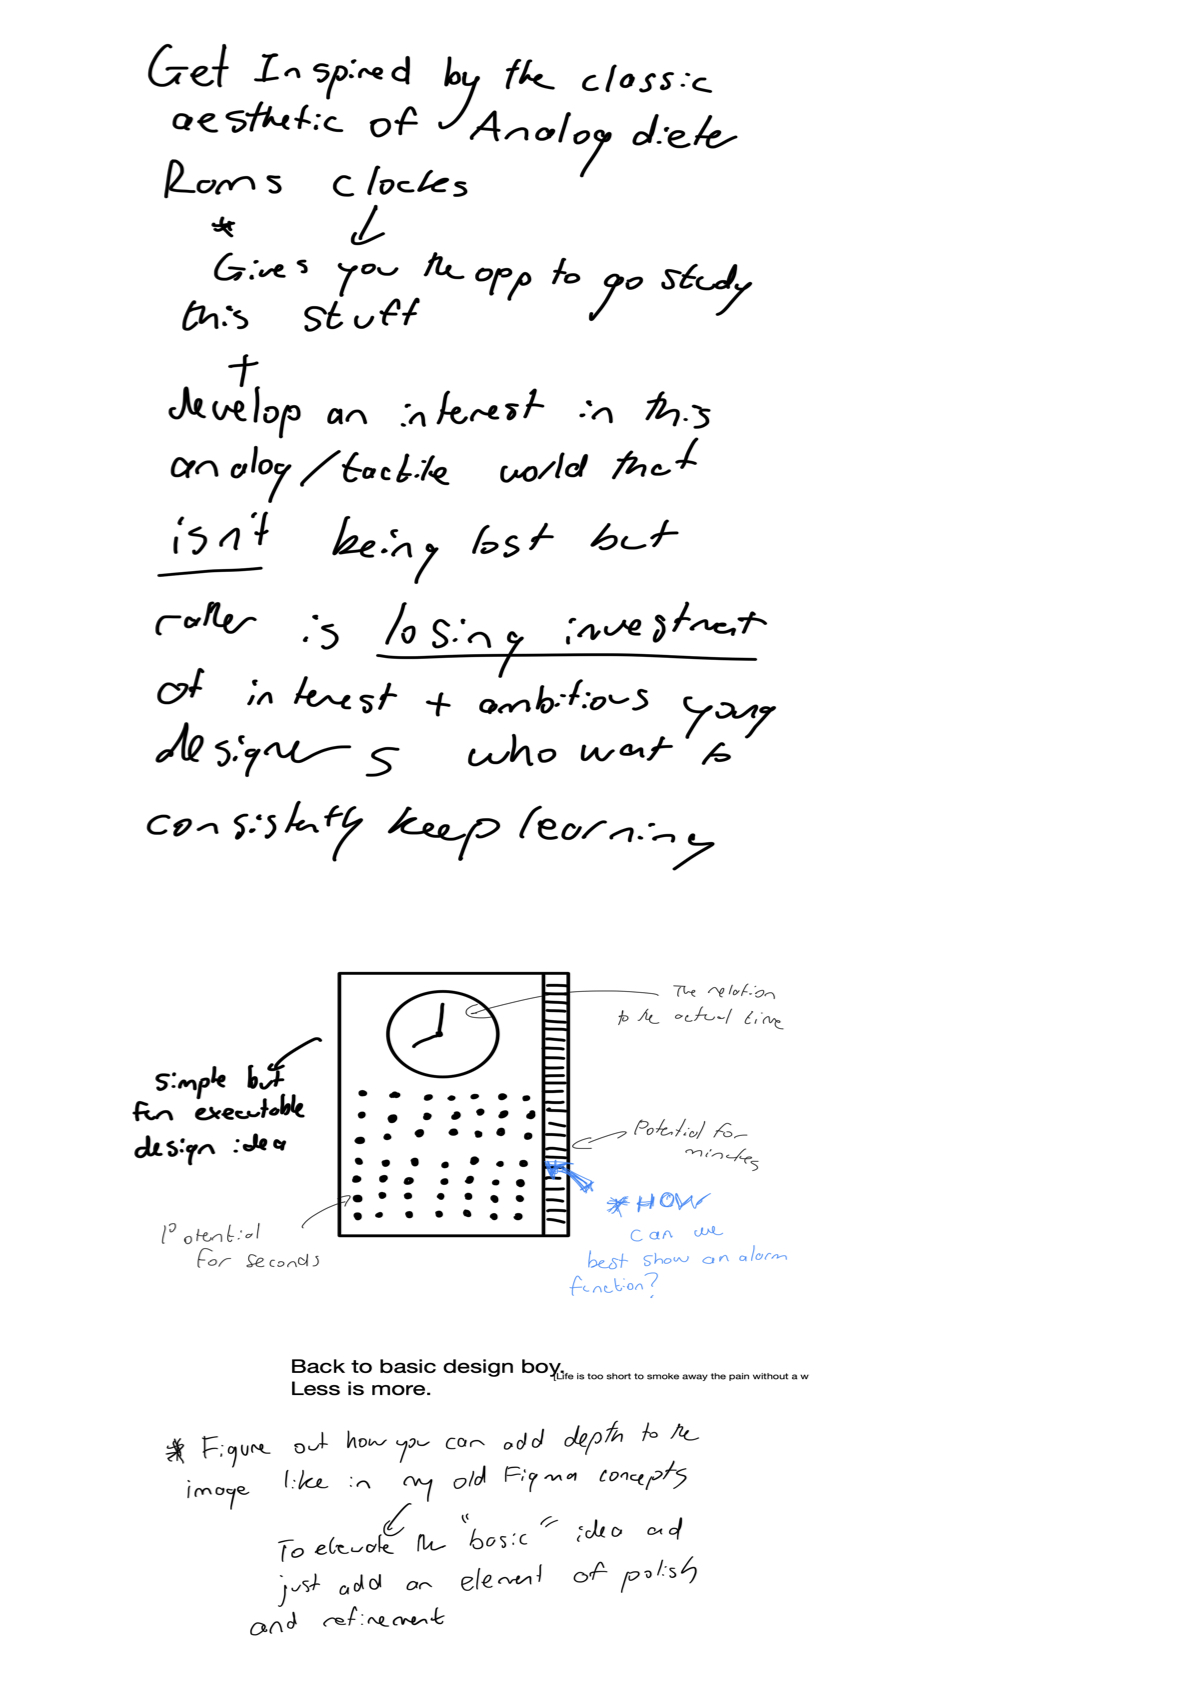 Get Inspired by the classic
aesthetic of Analog dieter
Rams clockes
*
Gives you the opp to go study
this stuff
+
develop an interest in this
analog/tactile world that
isn't being lost but
rather is losing investment
of interest + ambitious young
designers who want to
consistently keep learning
The relation
to the actual time
simple but
fun executable
design idea
Potential for
minutes
*HOW
can we
best show an alarm
function?
Potential
for seconds
Back to basic design boy.
[Life is too short to smoke away the pain without a w
Less is more.
* Figure out how you can add depth to the
image like in my old Figma concepts
To elevate the "basic" idea and
just add an element of polish
and refinement